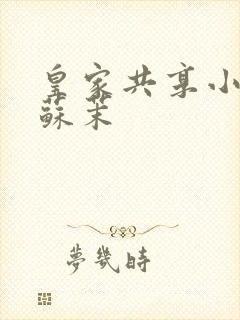 皇家共享小
蘇茉
夢幾時